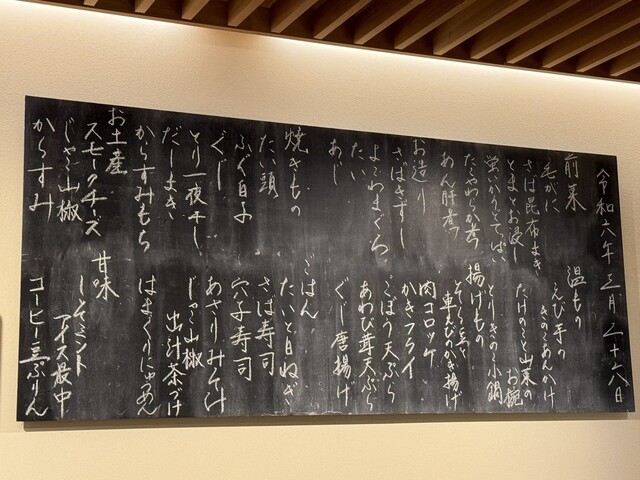 令和六年三月二十六日
前菜
毛がに
さば昆布まき
とまとお浸し
蛍いかうどてばさ
たこわらか煮
あん肝煮
お造り
さばきずし
よこわまぐろ
たい
あじ
焼きもの
たい頭
ふぐ白子
ぐじ
とり一夜干し
だしまき
からすみもち
お土産
スモークチーズ
じゃこ山椒
からすみ
温もの
えび芋の
きのこあんかけ
たけのこと山菜の
お椀
とりきのこ小鍋
揚げもの
そらまめと
車えびのかき揚げ
肉コロッケ
かきフライ
ごぼう天ぷら
あわび茸天ぷら
ぐじ唐揚げ
ごはん
たいと白ねぎ
さば寿司
穴子寿司
あさりみそ汁
じゃこ山椒
出汁茶づけ
はまぐりにゅうめん
甘味
アイス最中
コーヒー豆ぷりん